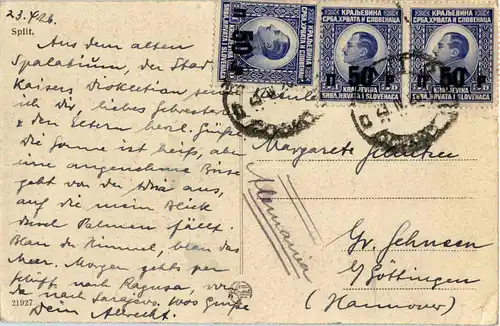 23.X.26.
Split.
Aus dem alten
Spalatium, der Stadt
Kaisers Diokletian
ich dir, liebes Schwesterl
& den Eltern herzl. Grüße
Die Sonne ist heiß, aber
eine angenehme Brise
geht von der Adria aus,
auf die mein Blick
durch Palmen fällt.
Blau der Himmel, blau das
Meer. Morgen gehts per
Schiff nach Ragusa, von
da nach Sarajevo. 1000 Grüße
Dein Albrecht.
21927
КРАЉЕВИНА
СРБА, ХРВАТА И СЛОВЕНАЦА
П 50 P
KRALJEVINA
SRBA, HRVATA I SLOVENACA
КРАЉЕВИНА
СРБА, ХРВАТА И СЛОВЕНАЦА
П 50 P
KRALJEVINA
SRBA, HRVATA I SLOVENACA
КРАЉЕВИНА
СРБА, ХРВАТА И СЛОВЕНАЦА
П 50 P
KRALJEVINA
SRBA, HRVATA I SLOVENACA
Margarete
Allemagna
Gr. Schneen
b/Göttingen
(Hannover)